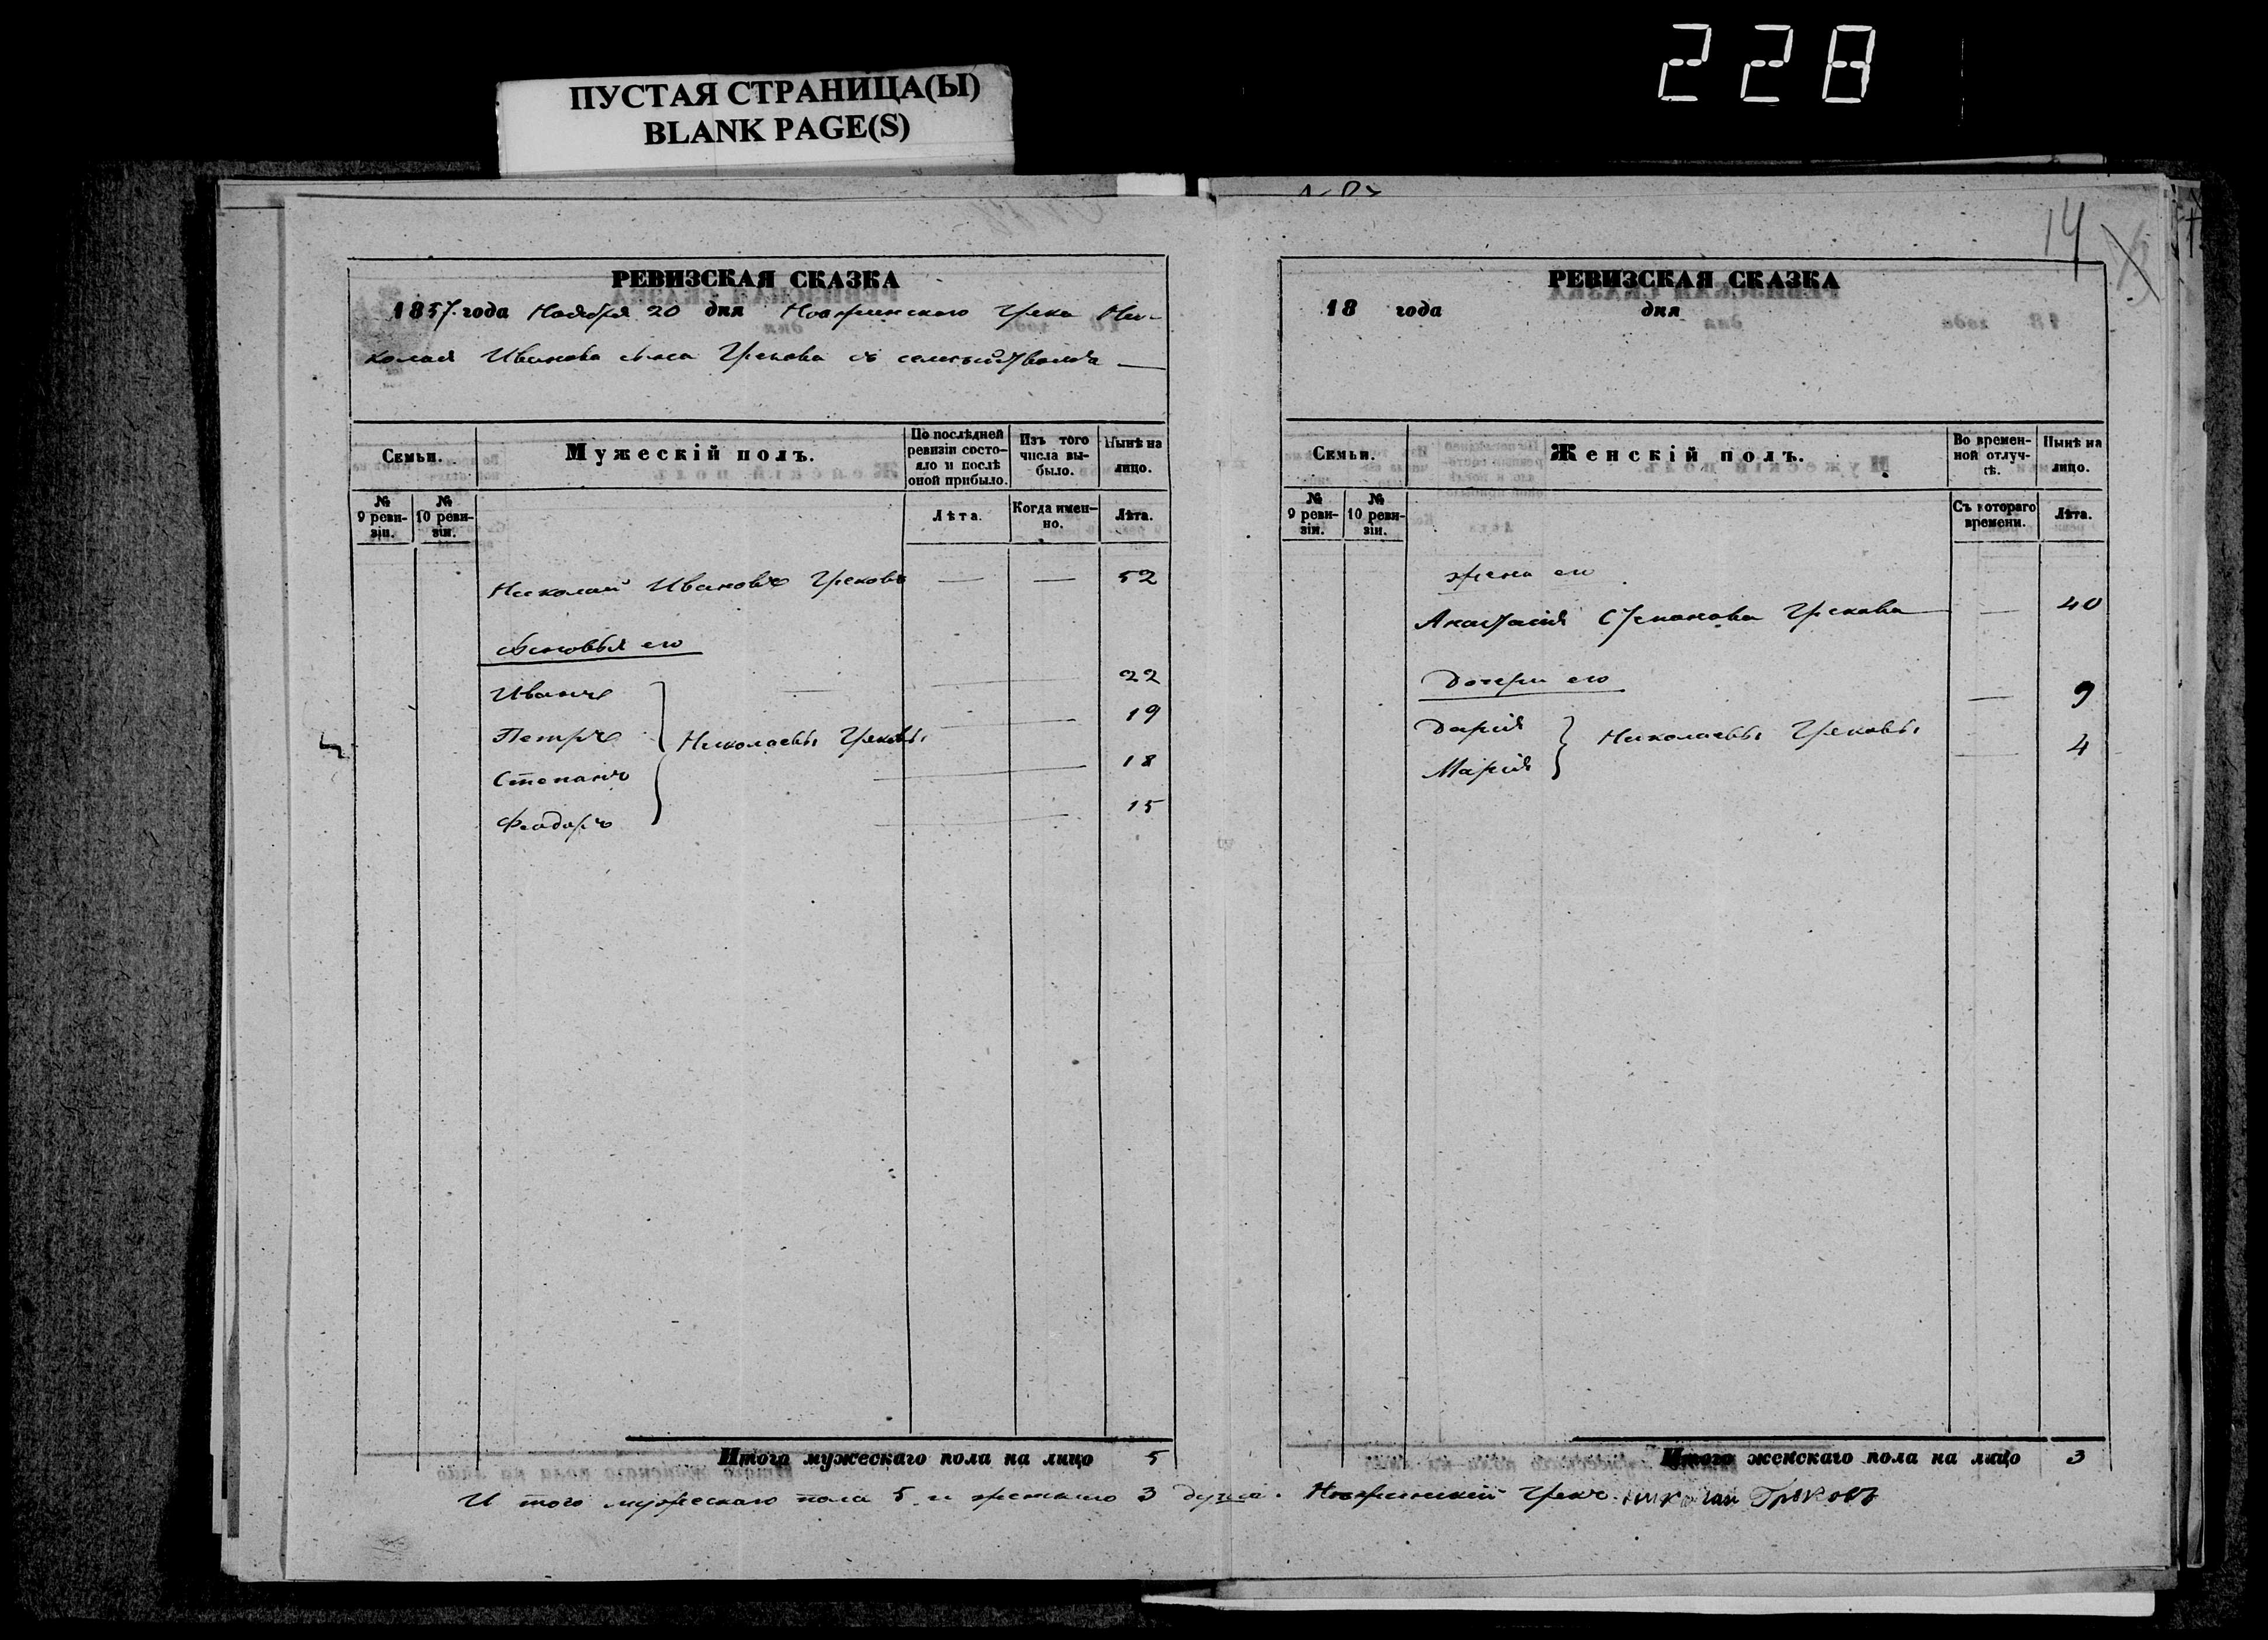 ПУСТАЯ СТРАНИЦА(Ы)
BLANK PAGE(S)
228
РЕВИЗСКАЯ СКАЗКА
1857 года Ноября 20 дня Нѣжинскаго Грека Ни-
колая Иванова сына Грекова съ семействомъ
Семьи.
Мужескій полъ.
По послѣдней ревизіи состо-яло и послѣ оной прибыло.
Изъ того числа вы-было.
Нынѣ на лицо.
№ 9 реви-зіи.
№ 10 реви-зіи.
Лѣта.
Когда имен-но.
Лѣта.
Николай Ивановъ Грековъ — — 52
сыновья его
Иванъ 22
Петръ 19
Николаевы Грековы
Степанъ 18
Феодоръ 15
Итого мужескаго пола на лицо 5
14
РЕВИЗСКАЯ СКАЗКА
18 года дня
Семьи.
Женскій полъ.
Во времен-ной отлуч-кѣ.
Нынѣ на лицо.
№ 9 реви-зіи.
№ 10 реви-зіи.
Съ котораго времени.
Лѣта.
жена его
Анастасія Степанова Грекова — 40
Дочери его
Дарія — 9
Николаевы Грековы
Марія — 4
Итого женскаго пола на лицо 3
И того мужескаго пола 5 и женскаго 3 души. Нѣжинскій Грекъ Николай Грековъ